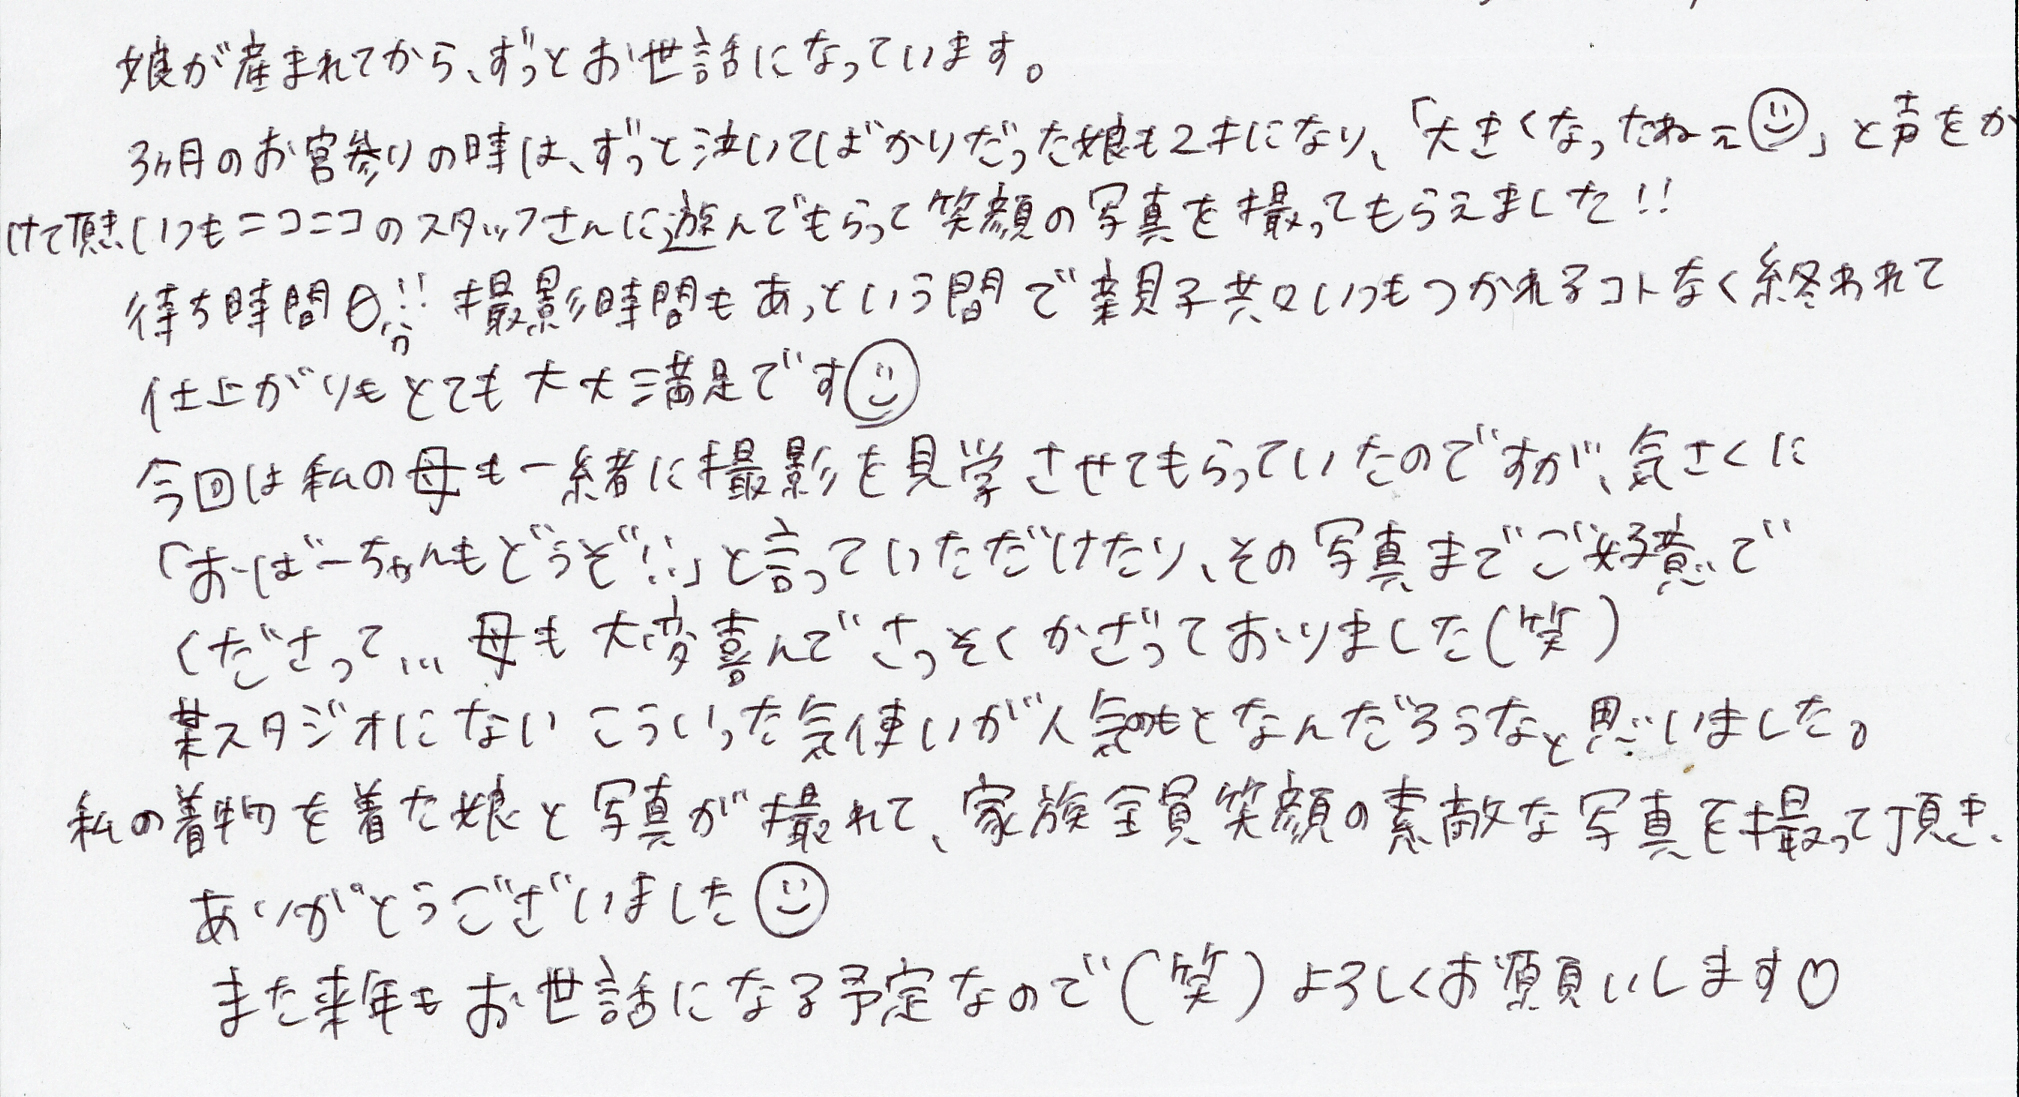 娘が産まれてから、ずっとお世話になっています。
3ヶ月のお宮参りの時は、ずっと泣いてばかりだった娘も2才になり、「大きくなったねぇ☺」と声をか
けて頂きいつもニコニコのスタッフさんに遊んでもらって笑顔の写真を撮ってもらえました!!
待ち時間0!! 撮影時間もあっという間で親子共々いつもつかれるコトなく終われて
仕上がりもとても大大満足です☺
今回は私の母も一緒に撮影を見学させてもらっていたのですが、気さくに
「おばーちゃんもどうぞ!!」と言っていただけたり、その写真までご好意で
くださって… 母も大変喜んでさっそくかざっておりました(笑)
某スタジオにない こういった気使いが人気のもとなんだろうなと思いました。
私の着物を着た娘と写真が撮れて、家族全員笑顔の素敵な写真を撮って頂き、
ありがとうございました☺
また来年もお世話になる予定なので(笑)よろしくお願いします♡